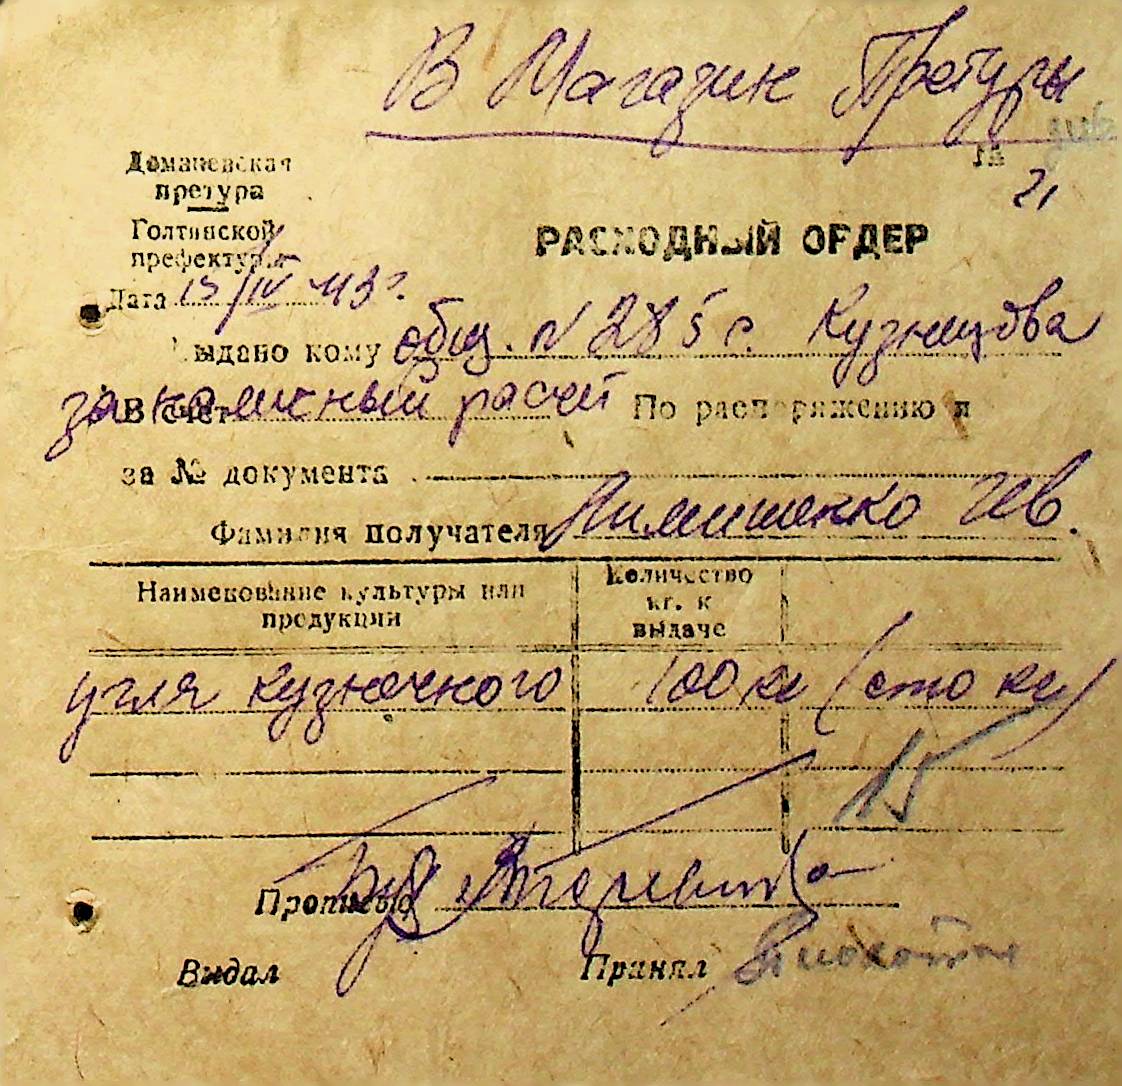 В Магазин Претуры
Доманевская
претура
Голтянской
префектуры
21
РАСХОДНЫЙ ОРДЕР
Дата 15/IV 43 г.
Выдано кому общ. N 285 с. Кузнецова
В счет за наличный расчет По распоряжению и
за № документа
Фамилия получателя
Наименование культуры или
продукции
Количество
кг. к
выдаче
угля кузнечного 100 кг (сто кг)
15
Прописью
Выдал
Принял